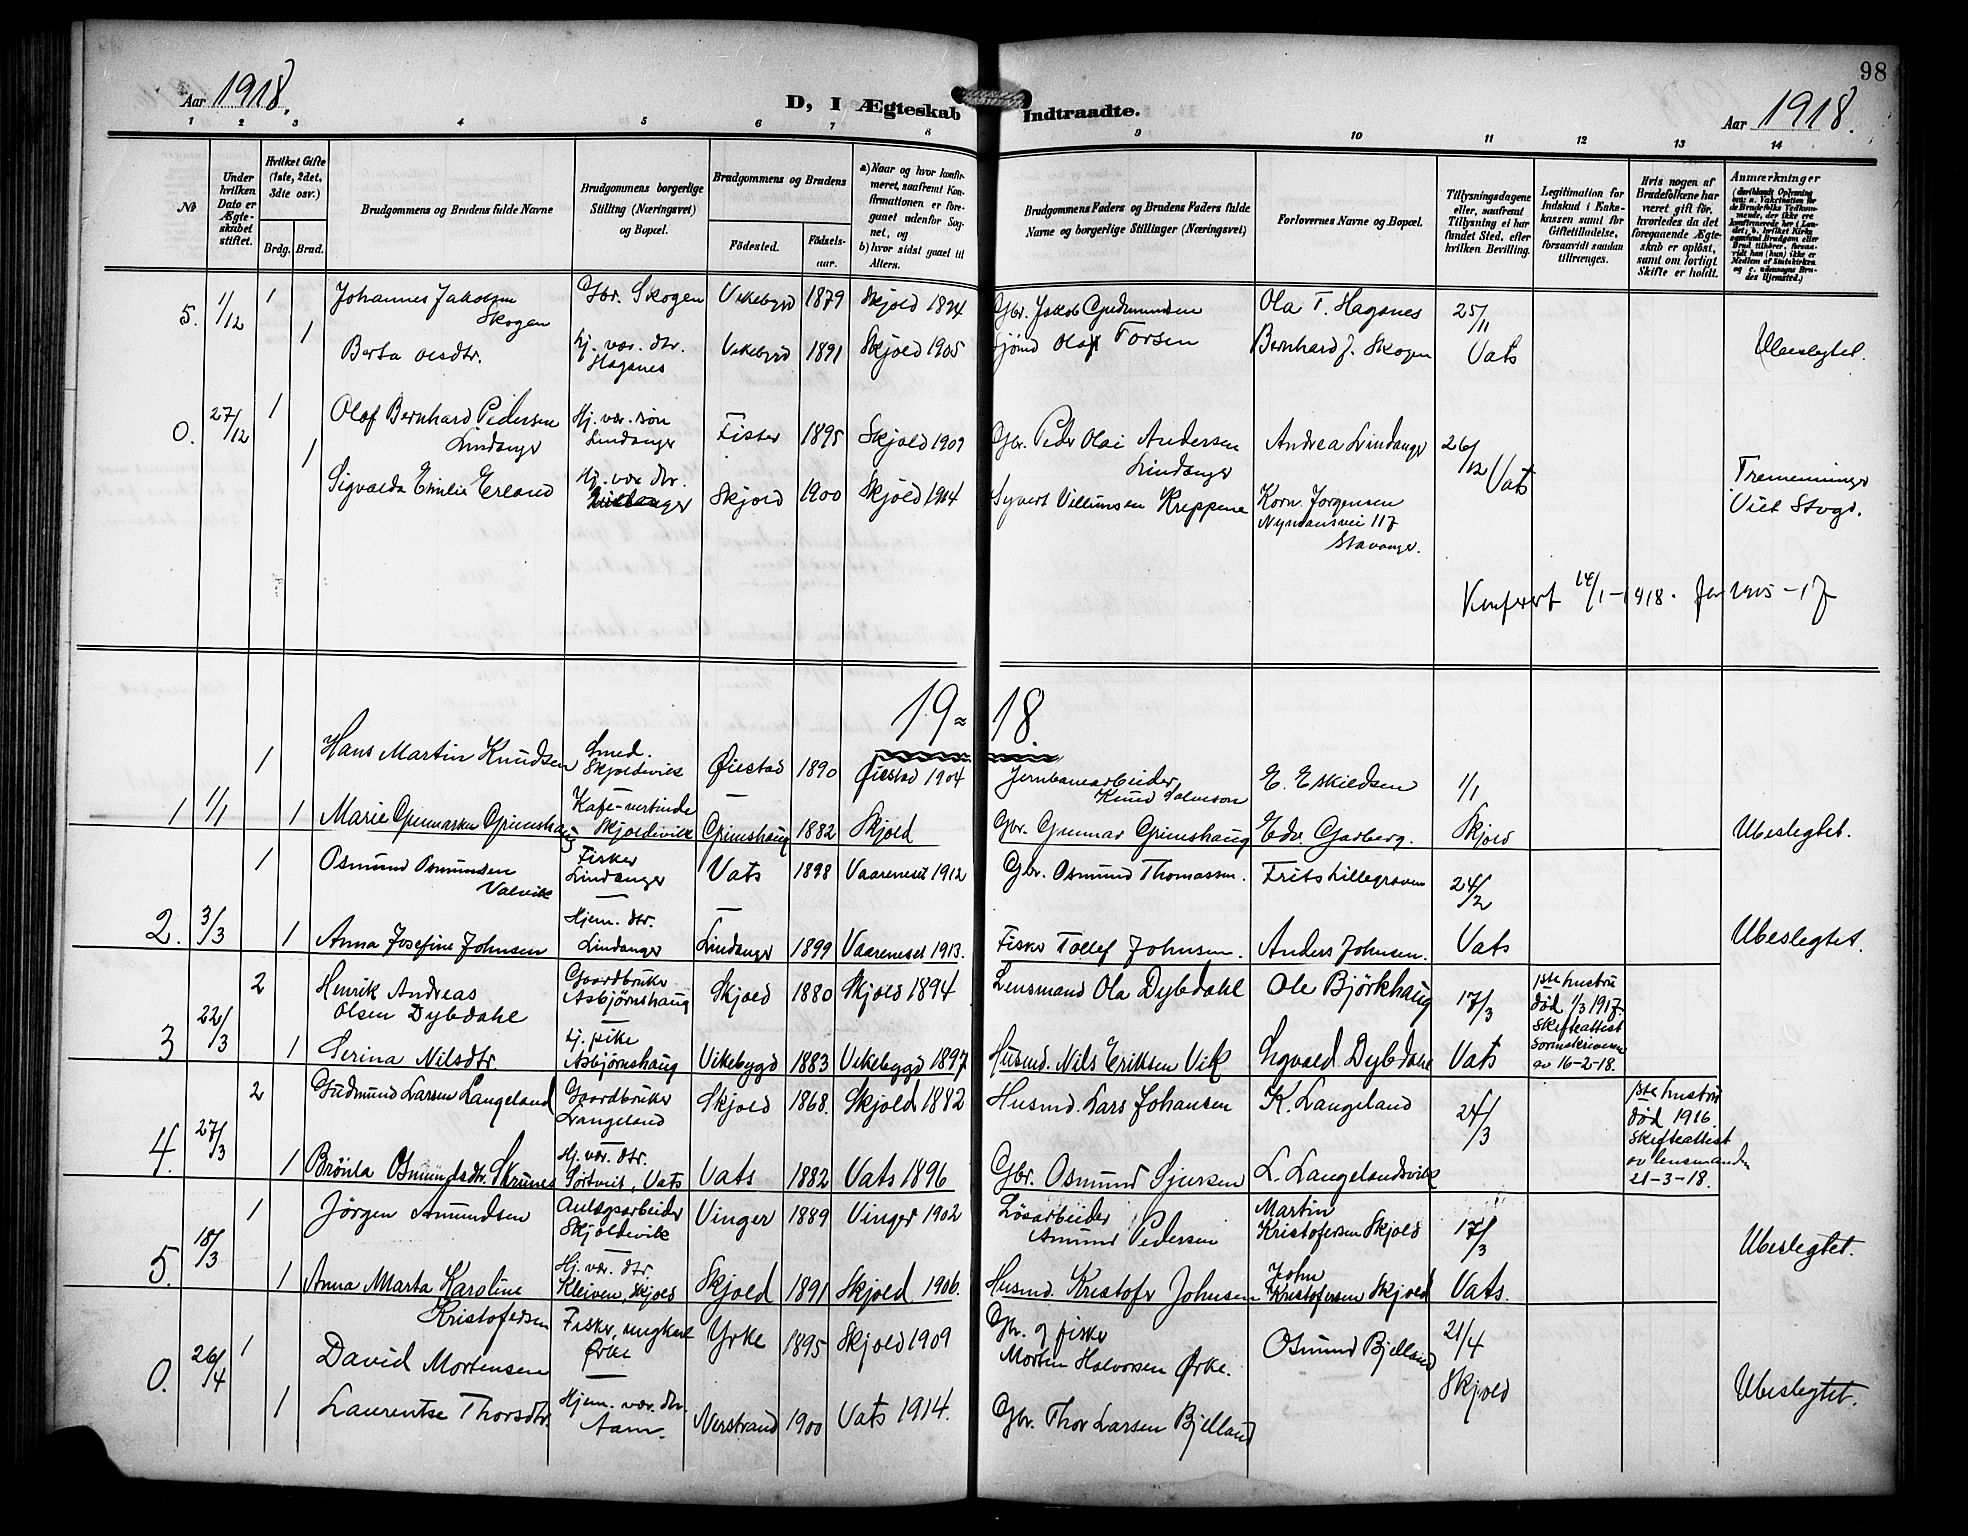 98
Aar 1918.
D, I Ægteskab Indtraadte.
Aar 1918.
1 2 3 4 5 6 7 8 9 10 11 12 13 14
№
Under hvilken Dato er Ægteskabet stiftet.
Hvilket Gifte (1ste, 2det, 3die osv.)
Brdg. Brud.
Brudgommens og Brudens fulde Navne
Brudgommens borgerlige Stilling (Næringsvei) og Bopæl.
Brudgommens og Brudens
Fødested.
Fødselsaar.
a) Naar og hvor konfirmeret, saafremt Konfirmationen er foregaaet udenfor Sognet, og
b) hvor sidst gaaet til Alters.
Brudgommens Faders og Brudens Faders fulde Navne og borgerlige Stillinger (Næringsvei)
Forlovernes Navne og Bopæl.
Tillysningsdagene eller, saafremt Tillysning ei har fundet Sted, efter hvilken Bevilling.
Legitimation for Indskud i Enkekassen samt for Giftetilladelse, forsaavidt saadan tiltrænges.
Hvis nogen af Brudefolkene har været gift før, hvorledes da det foregaaende Ægteskab er opløst, samt om lovligt Skifte er holdt.
Anmærkninger
5. 1/12 1 Johannes Jakobsen Skogen Gbr. Skogen Vikebygd 1879 Skjold 1894 Gbr. Jakob Gudmundsen Ola T. Hagsnes 25/11
1 Berta Olsdtr. Hj. vær. dtr. Hagsnes Vikebygd 1891 Skjold 1905 Olaf Torsen Bernhard J. Skogen Vats Ubeslegtet.
0. 27/12 1 Olaf Bernhard Pedersen Lindanger Hj. vær. søn Lindanger Fister 1895 Skjold 1909 Gbr. Peder Olai Andersen Lindanger Andrea Lindanger 26/12 Vats
1 Sigvalda Emilie Erland Hj. vær. dtr. Skjold 1900 Skjold 1914 Syvert Villumsen Kreppene Korn. Jørgensen 117 Stavanger. Tremenninger
Konferert 14/1-1918. for 1915-17
19 18.
1 1/1 1 Hans Martin Knudsen Smed. Skjoldevik Øiestad 1890 Øiestad 1904 Jernbanearbeider Knud Salveson E. Eskildsen 1/1
1 Marie Grimshaug Kafe-vertinde Skjoldevik Grimshaug 1882 Skjold Gbr. Gunnar Grimshaug Edv. Garberg. Skjold Ubeslegtet.
2. 3/3 1 Osmund Osmundsen Valvik Fisker Lindanger Vats 1898 Vaareneset 1912 Gbr. Osmund Thomassen. Frits Lillegraven 24/2
1 Anna Josefine Johnsen Hjem. dtr. Lindanger Lindanger 1899 Vaareneset 1913. Fisker Tollef Johnsen. Anders Johnsen. Vats Ubeslegtet.
3 22/3 2 Henrik Andreas Olsen Dybdahl Gaardbruker Asbjørnshaug Skjold 1880 Skjold 1894 Lensmand Ola Dybdahl Ole Bjørkhaug 17/3 1ste hustru død 1/3 1917. Skifteattest sorenskriveren av 16-2-18.
1 Serina Nilsdtr. Hj. pike Asbjørnshaug Vikebygd 1883 Vikebygd 1897 Husmd. Nils Eriksen Vik Sigvald Dybdahl Vats
4. 27/3 2 Gudmund Larsen Langeland Gaardbruker Langeland Skjold 1868. Skjold 1882 Husmd. Lars Johansen K. Langeland 24/3 1ste hustru død 1916. Skifteattest av lensmanden 21-3-18.
1 Brönla Osmundsdtr. Skrunes Hj. vær. dtr. Sørtveit, Vats Vats 1882 Vats 1896 Gbr. Osmund Sjursen L. Langelandsvik
5. 18/3 1 Jørgen Amundsen Anlægsarbeider Skjoldevik Vinger 1889 Vinger 1902 Løsarbeider Amund Pedersen Martin Kristofersen Skjold 17/3
1 Anna Marta Karoline Kristofersen Hj. vær. dtr. Kleiven, Skjold Skjold 1891 Skjold 1906. Husmd. Kristofer Johnsen John Kristofersen Skjold Vats. Ubeslegtet.
0. 26/4 1 David Mortensen Fisker, ungkarl Ørke Yrke 1895 Skjold 1909 Gbr. og fisker Morten Halvorsen Ørke. Osmund Bjelland 21/4
1 Laurentse Thorsdtr. Hjem. vær. dtr. Aam. Nerstrand 1900 Vats 1914. Gbr. Thor Larsen Bjelland Skjold Ubeslegtet.